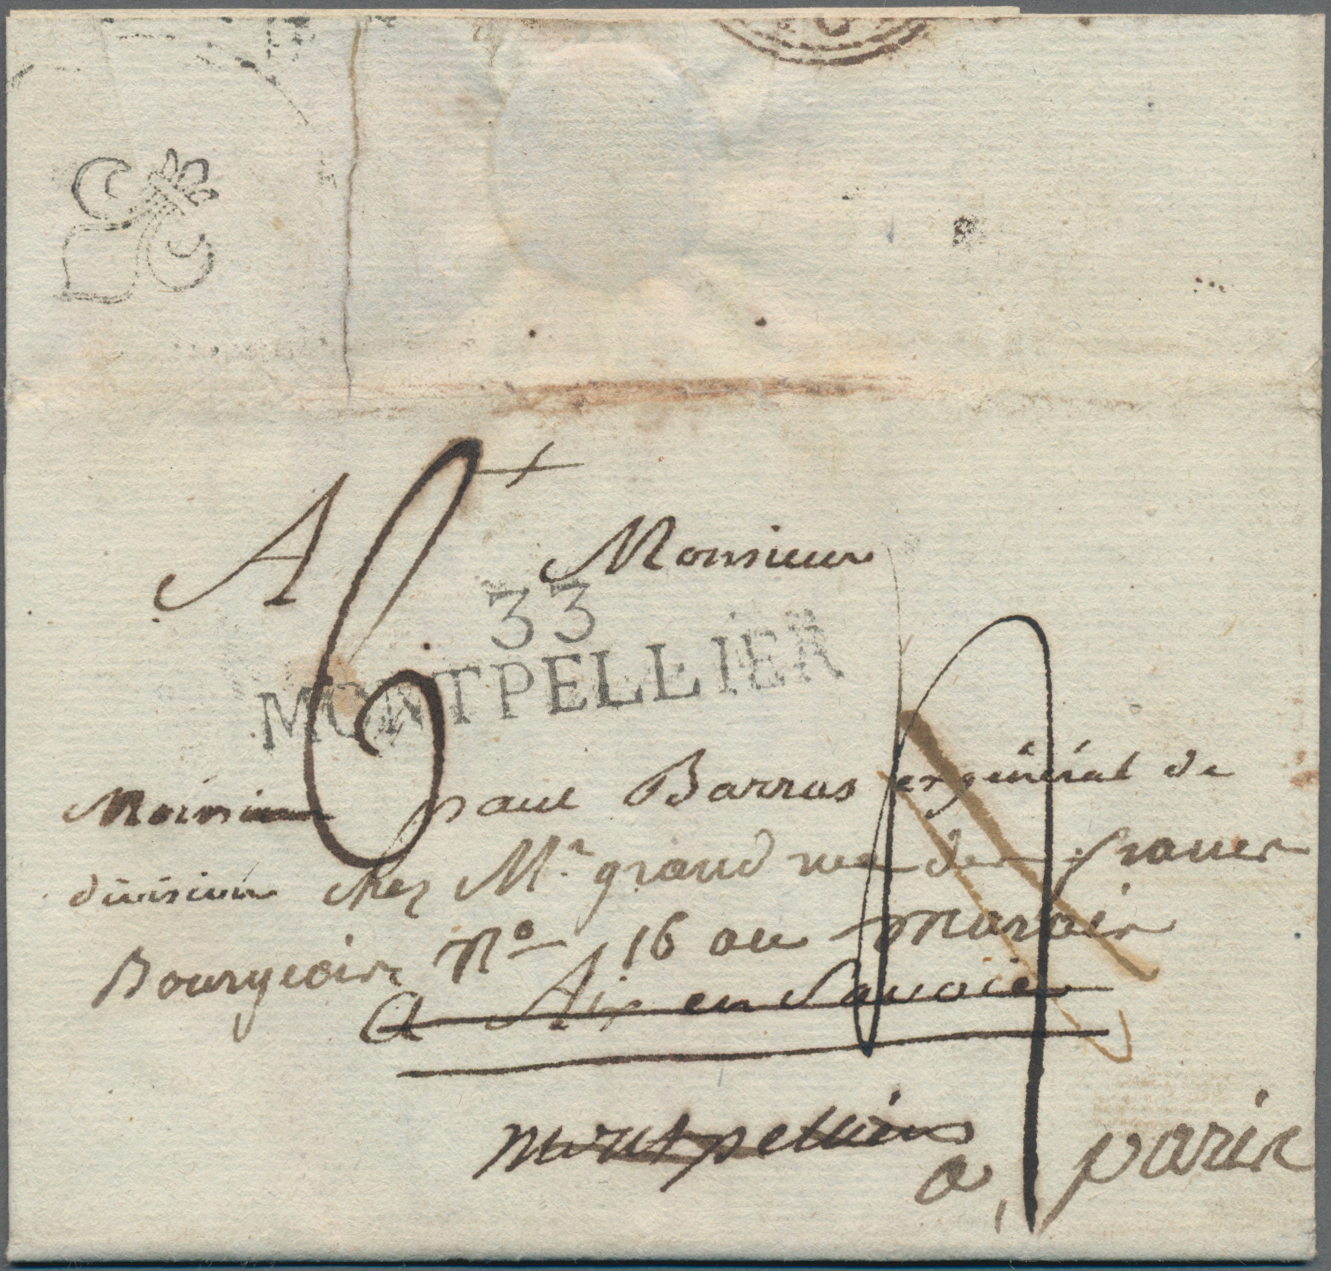 A Monsieur
33
MONTPELLIER
Monsieur paul Barras ex général de
division chez Mr. grand rue des francs
Bourgeois No 16 au marais
a Aix en Savoie
montpellier
a paris
6